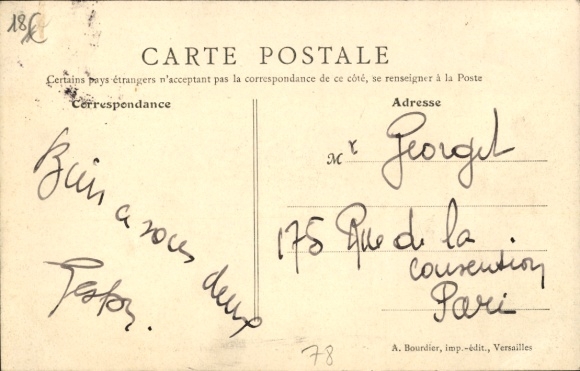 18€
CARTE POSTALE
Certains pays étrangers n'acceptent pas la correspondance de ce côté, se renseigner à la Poste
Correspondance
Adresse
Mr Georget
175 Rue de la
Convention
Pari
Bien a vous deux
A. Bourdier, imp.-édit., Versailles
78